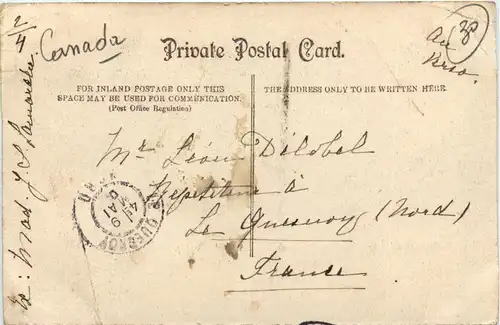 Canada
Private Postal Card.
FOR INLAND POSTAGE ONLY THIS
SPACE MAY BE USED FOR COMMUNICATION.
(Post Office Regulation)
THE ADDRESS ONLY TO BE WRITTEN HERE.
Mr Léon Delobel
Répétiteur à
Le Quesnoy (Nord)
France
2/4
Ex: Mad. J. S.
LE QUESNOY
45/9
MAI
Au